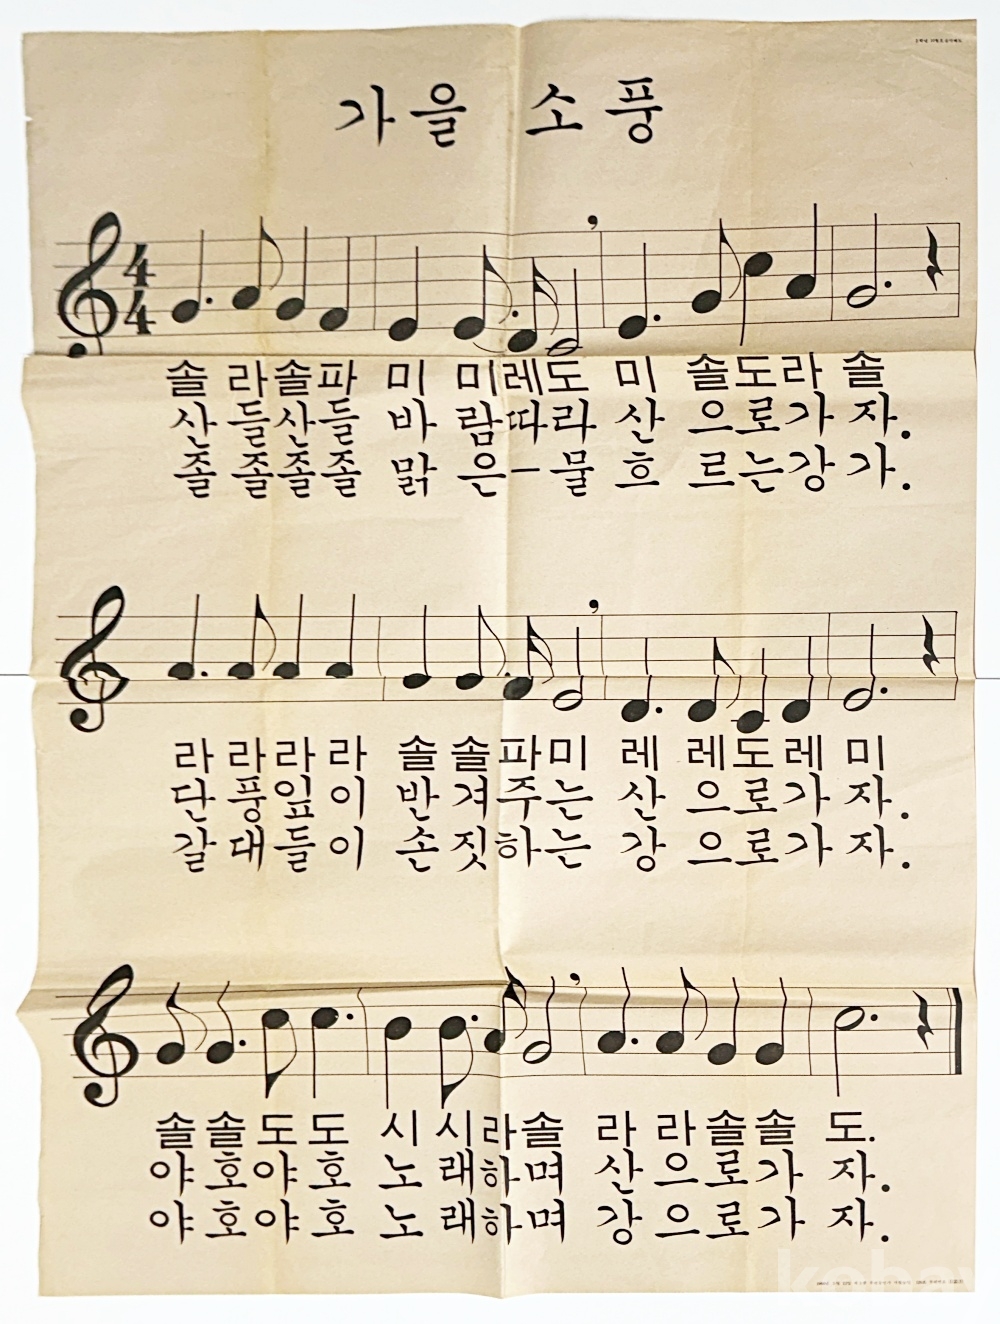 가을 소풍
4
4
솔 라솔파 미 미레도 미 솔도라 솔
산 들산들 바 람따라 산 으로가 자.
졸 졸졸졸 맑 은-물 흐 르는강 가.
라 라라라 솔 솔파미 레 레도레 미
단 풍잎이 반 겨주는 산 으로가 자.
갈 대들이 손 짓하는 강 으로가 자.
솔솔도도 시 시라솔 라 라솔솔 도.
야호야호 노 래하며 산 으로가 자.
야호야호 노 래하며 강 으로가 자.